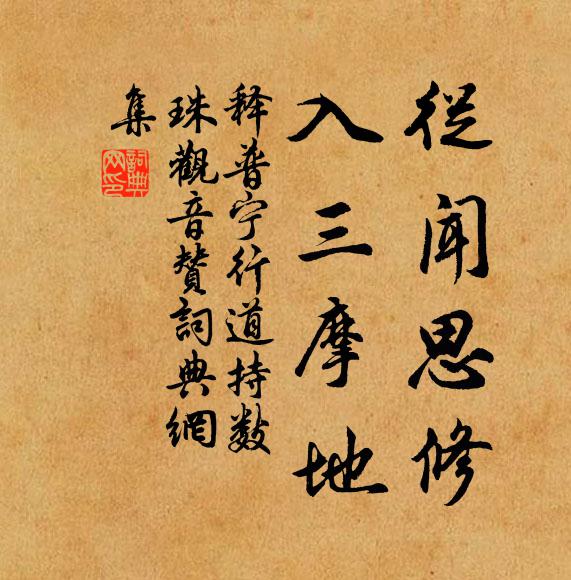 從聞思修
入三摩地
释普宁行道持数
珠觀音贊詞典網
集
詞典
网印